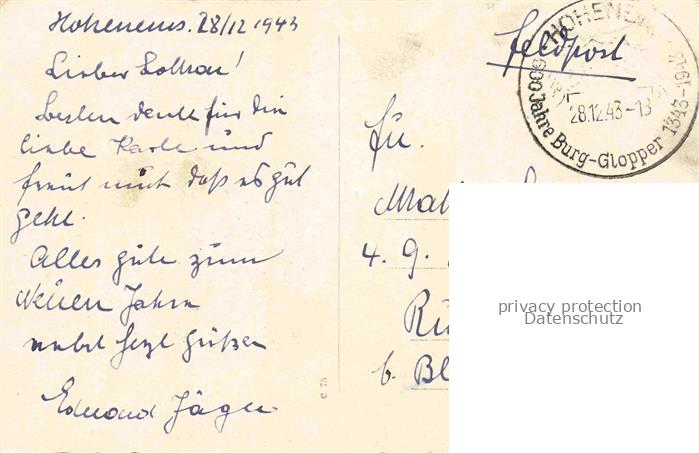 Hohenems. 28/12 1943
Lieber Lothar!
Besten dank für die
liebe Karte und
freut mich daß es gut
geht.
Alles gute zum
Neuen Jahre
nebst herzl Grüßen
Edmond Jäger
e 75
Feldpost
HOHENE
600 Jahre Burg-Glopper 1343-1943
28.12.43-13
4. 9.
b. Bl
privacy protection
Datenschutz